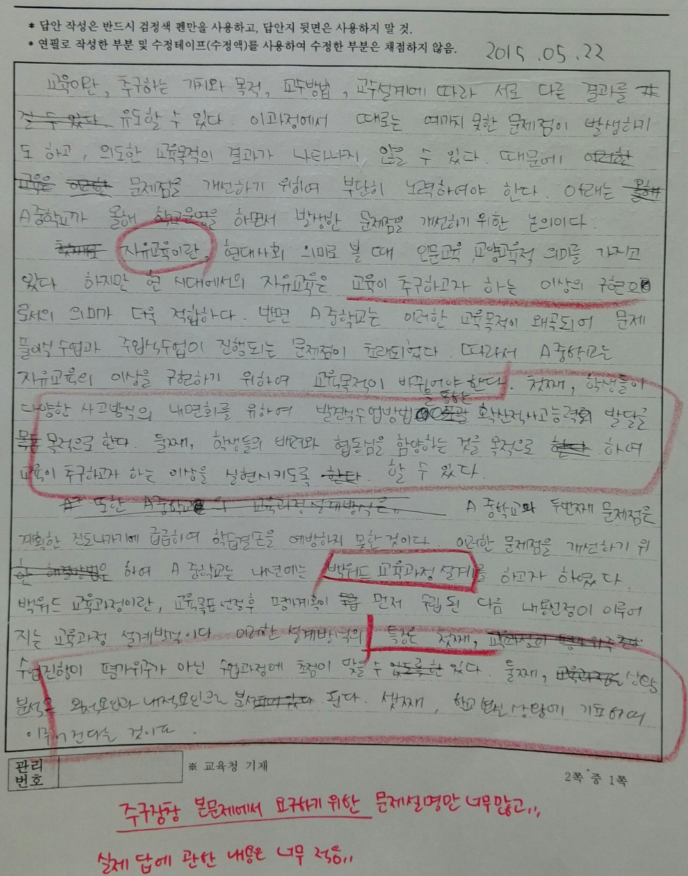 * 답안 작성은 반드시 검정색 펜만을 사용하고, 답안지 뒷면은 사용하지 말 것.
* 연필로 작성한 부분 및 수정테이프(수정액)를 사용하여 수정한 부분은 채점하지 않음.
2015.05.22
교육이란, 추구하는 가치와 목적, 교수방법, 교수설계에 따라 서로 다른 결과를
질 수 있다. 유도할 수 있다. 이과정에서 때로는 예기치 못한 문제점이 발생하기
도 하고, 의도한 교육목적의 결과가 나타나지 않을 수 있다. 때문에 이러한
교육은 문제점을 개선하기 위하여 부단히 노력하여야 한다. 아래는
A중학교가 올해 학교운영을 하면서 발생한 문제점을 개선하기 위한 논의이다.
자유교육이란, 현대사회 의미로 볼 때 인문교육, 교양교육적 의미를 가지고
있다. 하지만 현 시대에서의 자유교육은 교육이 추구하고자 하는 이상의 구현으
로서의 의미가 더욱 적합하다. 반면 A중학교는 이러한 교육목적이 왜곡되어 문제
풀이식 수업과 주입식수업이 진행되는 문제점이 초래되었다. 따라서 A중학교는
자유교육의 이상을 구현하기 위하여 교육목적이 바뀌어야 한다. 첫째, 학생들이
다양한 사고방식의 내면화를 위하여 발견식수업방법을 통한 확산적사고능력의 발달을
목적으로 한다. 둘째, 학생들의 배려와 협동심을 함양하는 것을 목적으로 한다 하여
교육이 추구하고자 하는 이상을 실현시키도록 한다. 할 수 있다.
또한 A중학교의 교육과정설계방식은 A중학교의 두번째 문제점은
계획한 진도나가기에 급급하여 학습결손을 예방하지 못한 것이다. 이러한 문제점을 개선하기 위
한 해결방법은 하여 A중학교는 내년에는 백워드 교육과정 설계를 하고자 하였다.
백워드 교육과정이란, 교육목표설정후 평가계획이 먼저 수립된 다음 내용선정이 이루어
지는 교육과정 설계방식이다. 이러한 설계방식의 특징은 첫째,
수업진행이 평가위주가 아닌 수업과정에 초점이 맞출 수 있도록 한 있다. 둘째, 교육과정은 상황
분석은 외적요인과 내적요인으로 된다. 셋째, 학교현실상황에 기초하여
이루어진다는 것이다.
관리
번호
※ 교육청 기재
2쪽 중 1쪽
주구장창 본문제에서 요구하기 위한 문제설명만 너무많고,,
실제 답에 관한 내용은 너무 적음,,